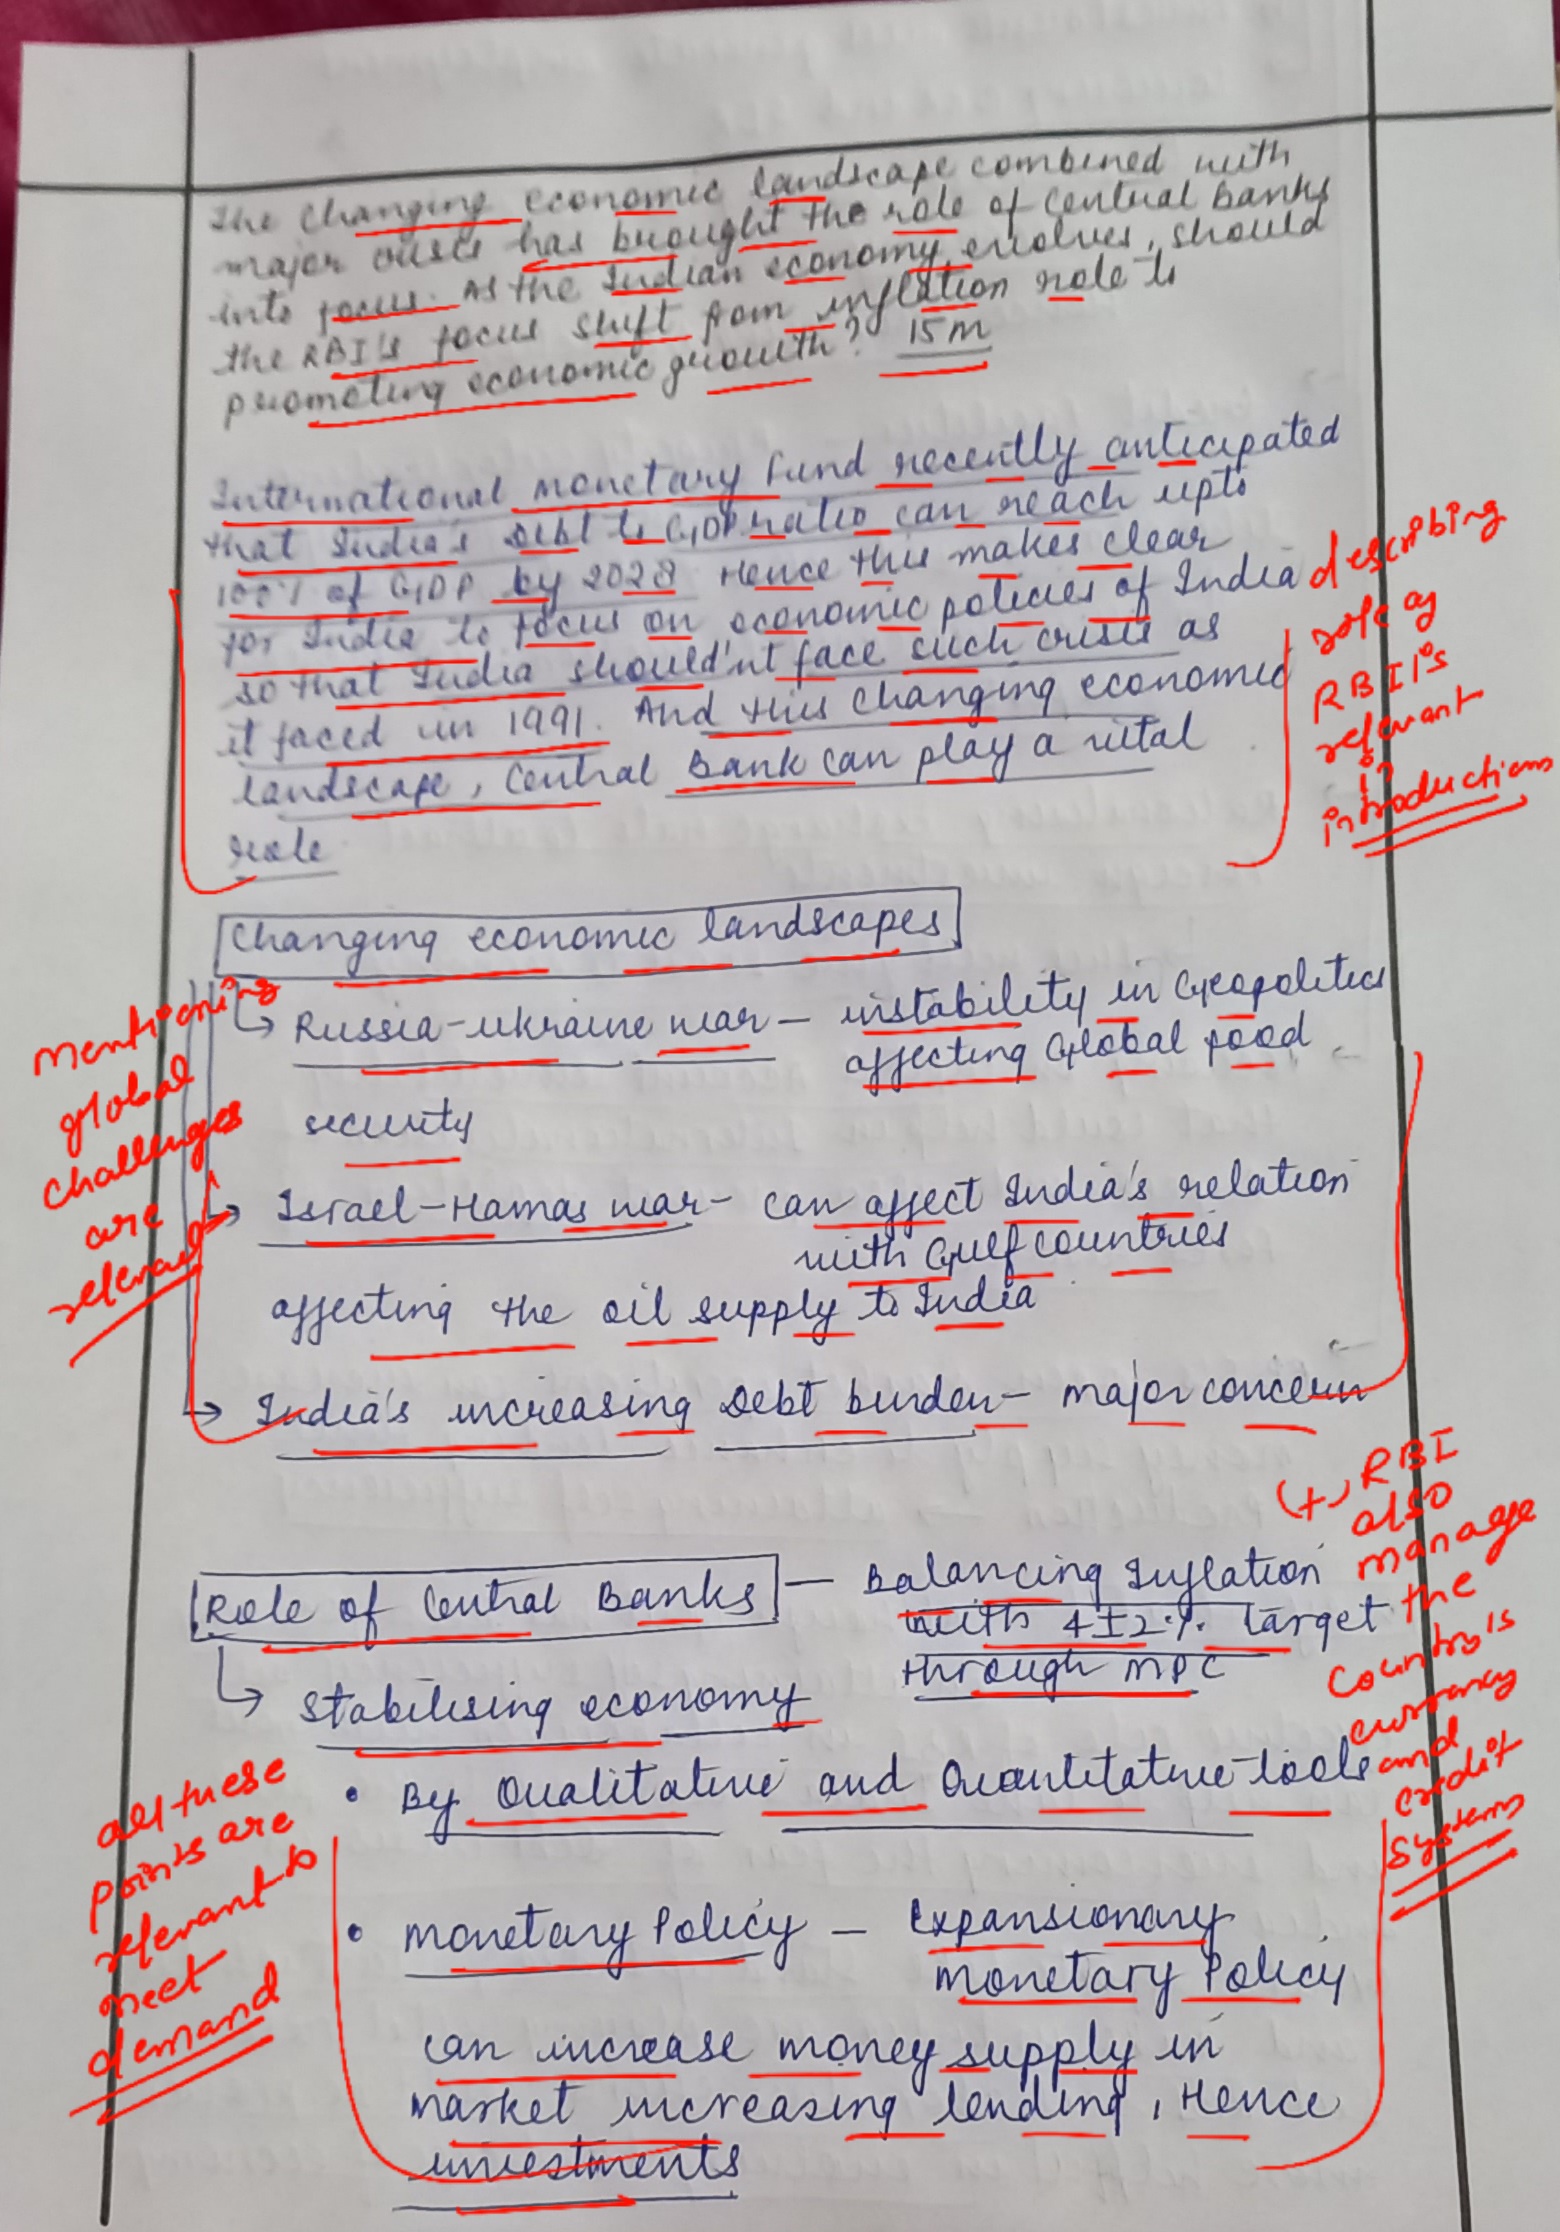 The Changing economic landscape combined with
major crisis has brought the role of Central Banks
into focus. As the Indian economy evolves, should
the RBI's focus shift from inflation role to
promoting economic growth? 15m
International monetary Fund recently anticipated
that India's Debt to GDP ratio can reach upto
100% of GDP by 2028 Hence this makes clear
for India to focus on economic policies of India
so that India should'nt face such crisis as
it faced in 1991. And this changing economic
landscape, Central Bank can play a vital
role
describing
role of
RBI's
relevant
in
introductions
Changing economic landscapes
Russia-Ukraine war - instability in Geopolitics
affecting Global food
security
Israel-Hamas war - can affect India's relation
with Gulf countries
affecting the oil supply to India
India's increasing Debt burden - major concern
mentioning
global
challenges
are
relevant
Role of Central Banks - Balancing Inflation
with 4±2% target
through MPC
Stabilising economy
• By Qualitative and Quantitative tools
• Monetary Policy - Expansionary
monetary Policy
can increase money supply in
market increasing lending, Hence
investments
(+) RBI
also
manage
the
Country's
currency
and
credit
Systems
all these
points are
relevant to
meet
demand